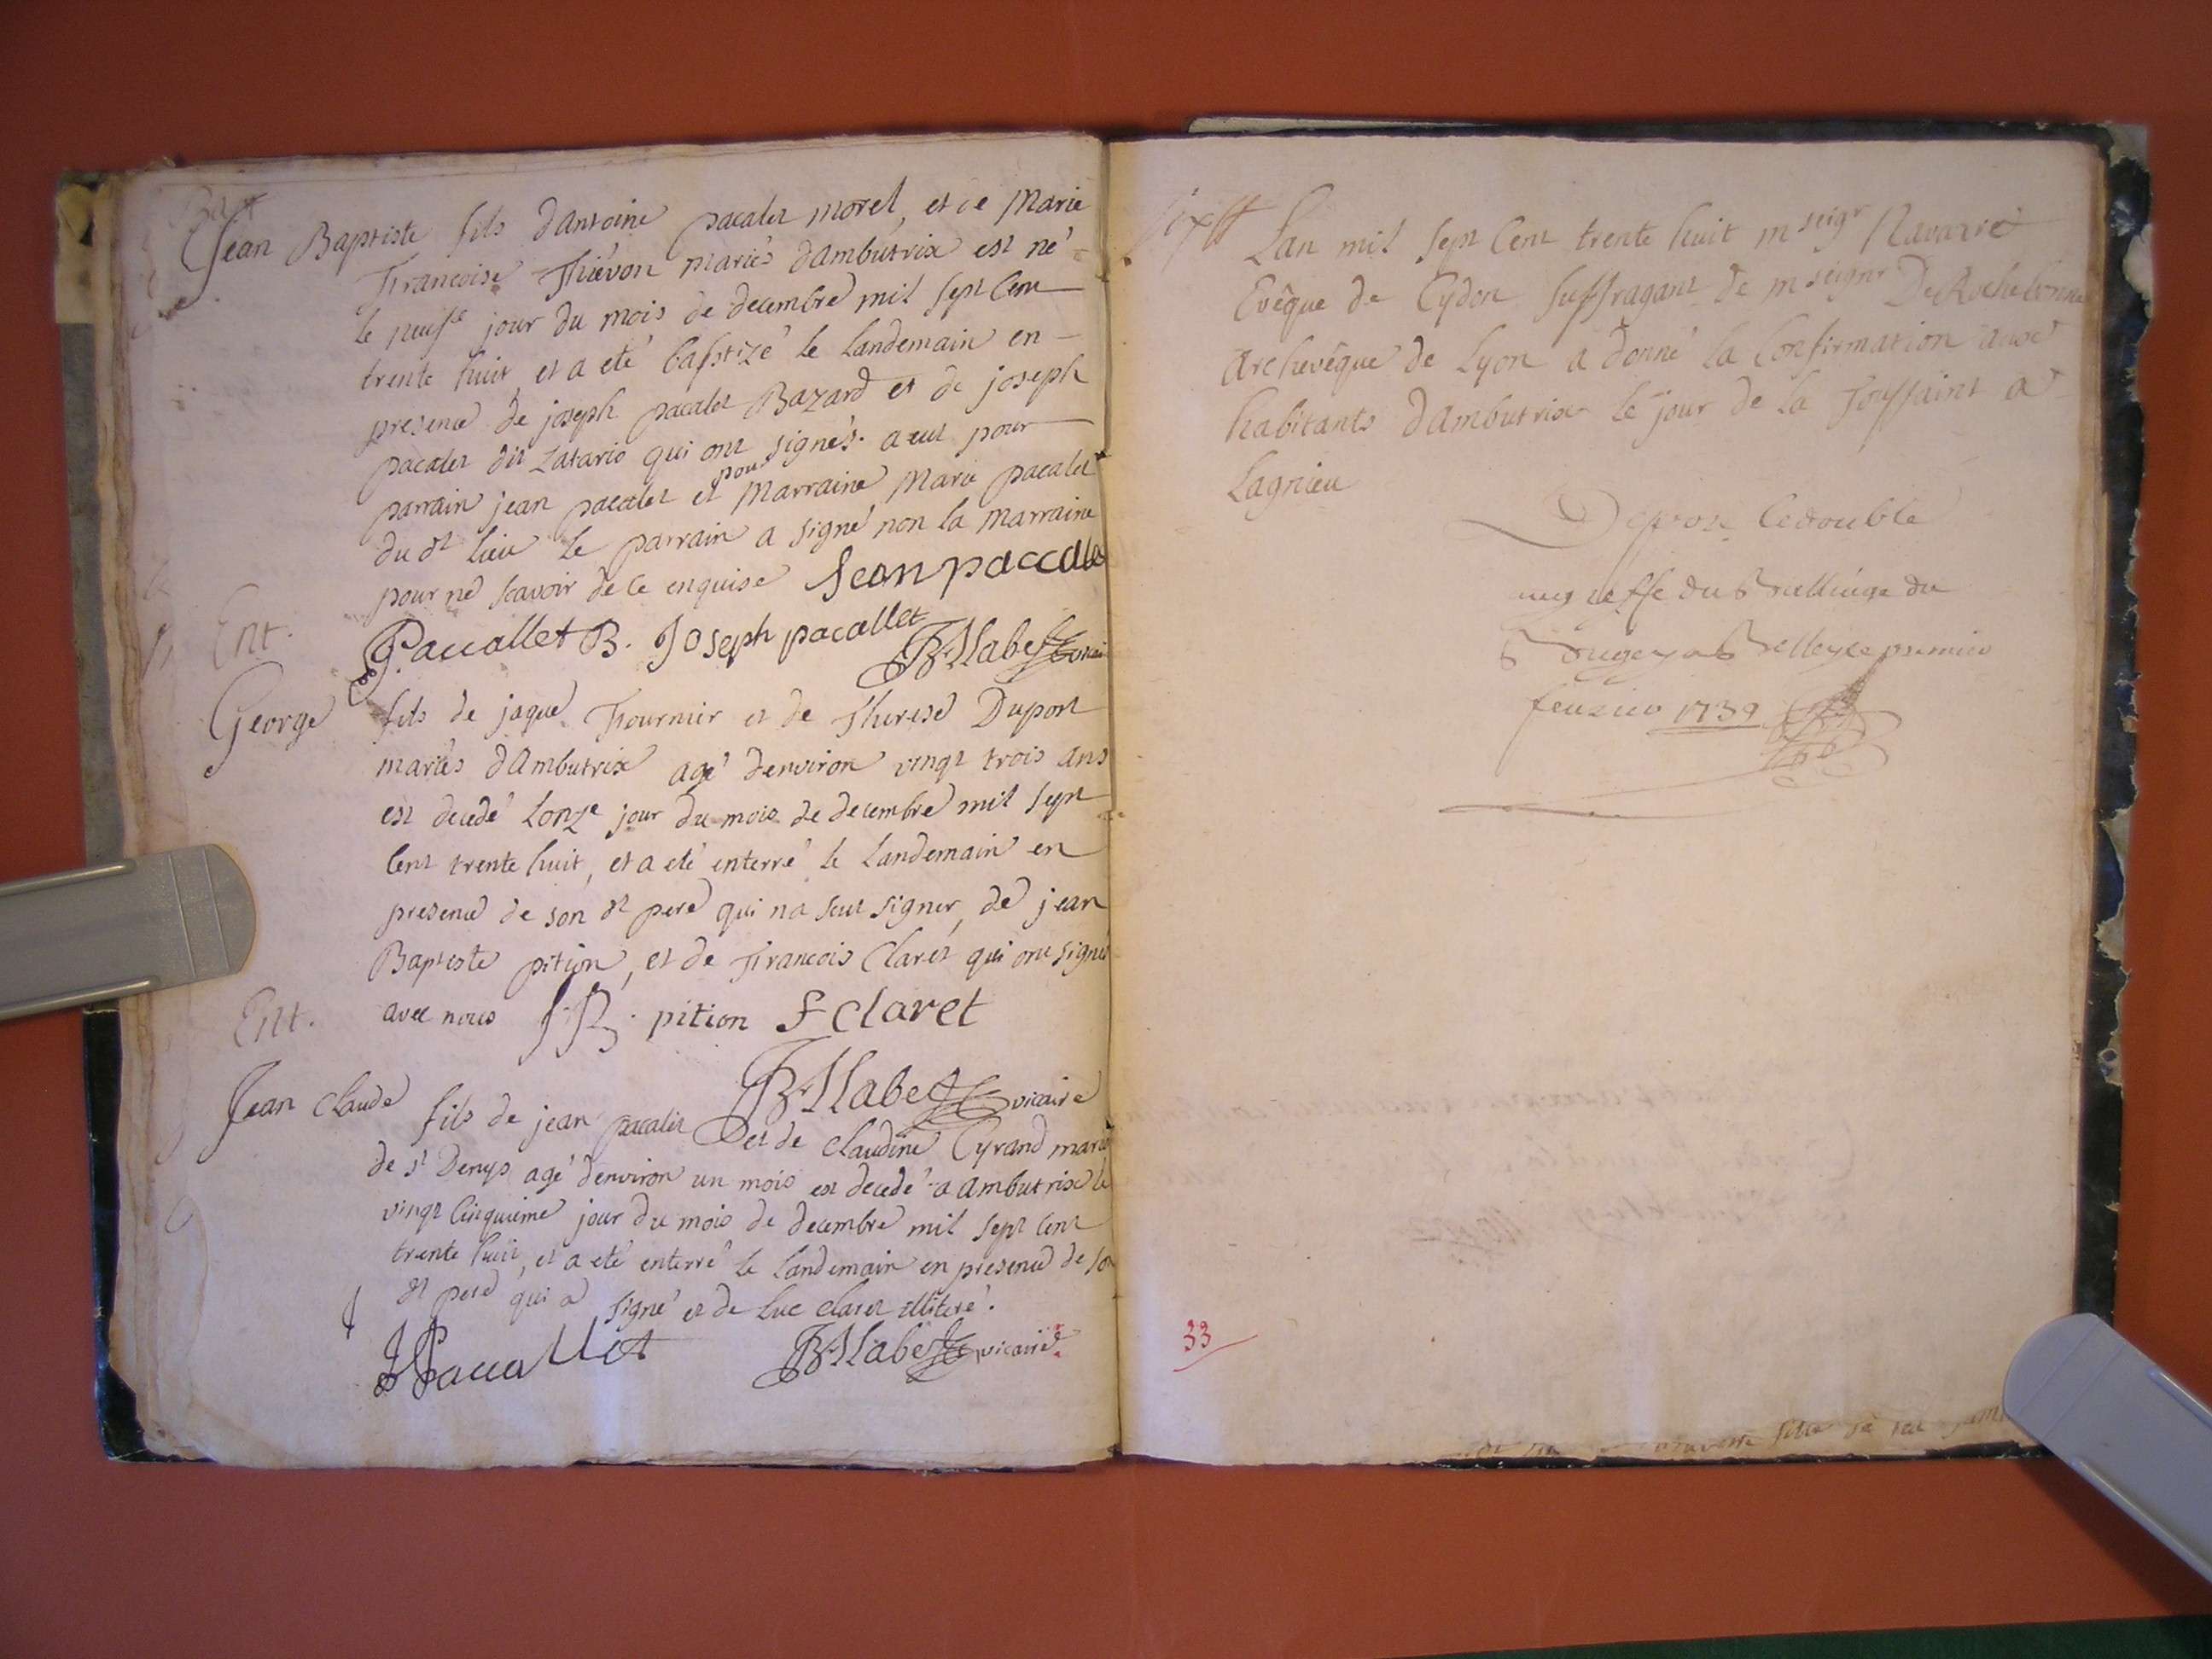 Bat
Jean Baptiste fils dAntoine pacalet morel, et de Marie
Francoise Thiévon mariés dAmbutrix est né
le neufe jour du mois de decembre mil sept Cent
trente huit, et a eté baptizé le Landemain en
presence de joseph pacalet Bazard et de joseph
pacalet dit Latario qui ont signés. a eut pour
parrain jean pacalet et pour Marraine Marie pacalet
du dt lieu le parrain a signé non la Marraine
pour ne scavoir de ce enquise Jean paccalet
Ent.
Paccallet B. Joseph pacallet
George fils de jaque Fournier et de Therese Dupont
mariés dAmbutrix agé denviron vingt trois ans
est decedé Lonze jour du mois de decembre mil sept
Cent trente huit, et a eté enterré le Landemain en
presence de son dt pere qui na seut signer, de jean
Baptiste pition, et de Francois Claret qui ont signés
avec nous J:B. pition F Claret
Ent.
vicaire
Jean Claude fils de jean pacalet et de Claudine Cyrand mariés
de st Denys agé denviron un mois est decedé a Ambutrix le
vingt Cinquieme jour du mois de decembre mil sept Cent
trente huit, et a eté enterré le Landemain en presence de son
dt pere qui a signé et de Luc Claret illiteré.
J Paccallet vicaire
Lan mil sept Cent trente huit mseigr Navarre
Evêque de Cydon suffragant de mseignr De Rochebonne
Archevêque de Lyon a donné la Confirmation aux
habitants dAmbutrix le jour de la Toussaint a
Lagnieu
Deposé le double
au greffe du Bailliage du
Bugey a Belley ce premier
feurier 1739
33